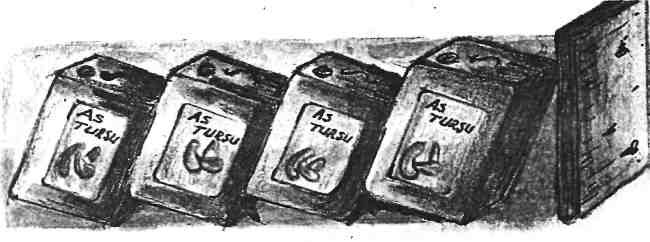 AS
TURSU
AS
TURSU
AS
TURSU
AS
TURSU